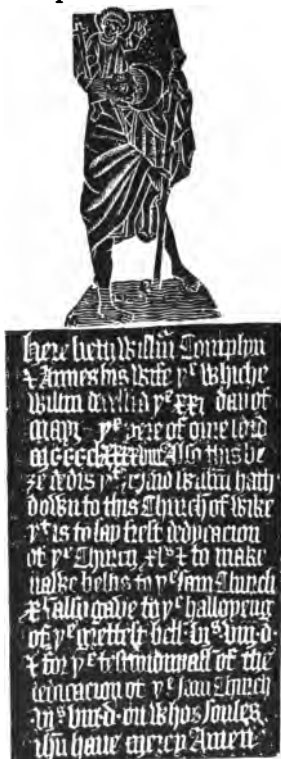 here lieth Willm̄ Complyn
& Annes his wife yᵉ whiche
Willm decessid yᵉ xxi day of
mayi yᵉ yere of oure lord
mcccclxxxxviii Also this be
ze dedis yᵗ yᵉ said Willm̄ hath
down to this Church of Wike
yᵗ is to say frest dedycacion
of yᵉ Church xlˢ & to make
nawe bellis to yᵉ sam Church
xˡ also gave to yᵉ halloyeng
of yᵉ grettest bell viˢ viii·d·
& for yᵉ testimoniall of the
dedicacion of yᵉ sam Church
viˢ viii·d· on whos soules
ihū have mercy Amen